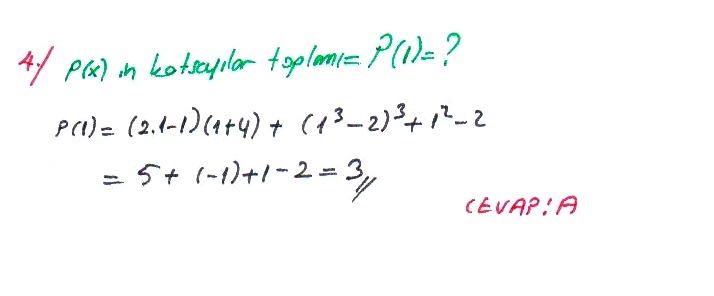 4-/ P(x) in katsayılar toplamı= P(1)=?
P(1)= (2.1-1)(1+4) + (1³-2)³+1²-2
= 5+ (-1)+1-2=3//
CEVAP:A